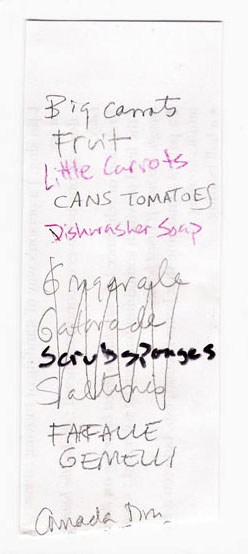 Big carrots
Fruit
Little Carrots
CANS TOMATOES
Dishwasher Soap
Gatorade
Scrub sponges
FARFALLE
GEMELLI
Canada Dry